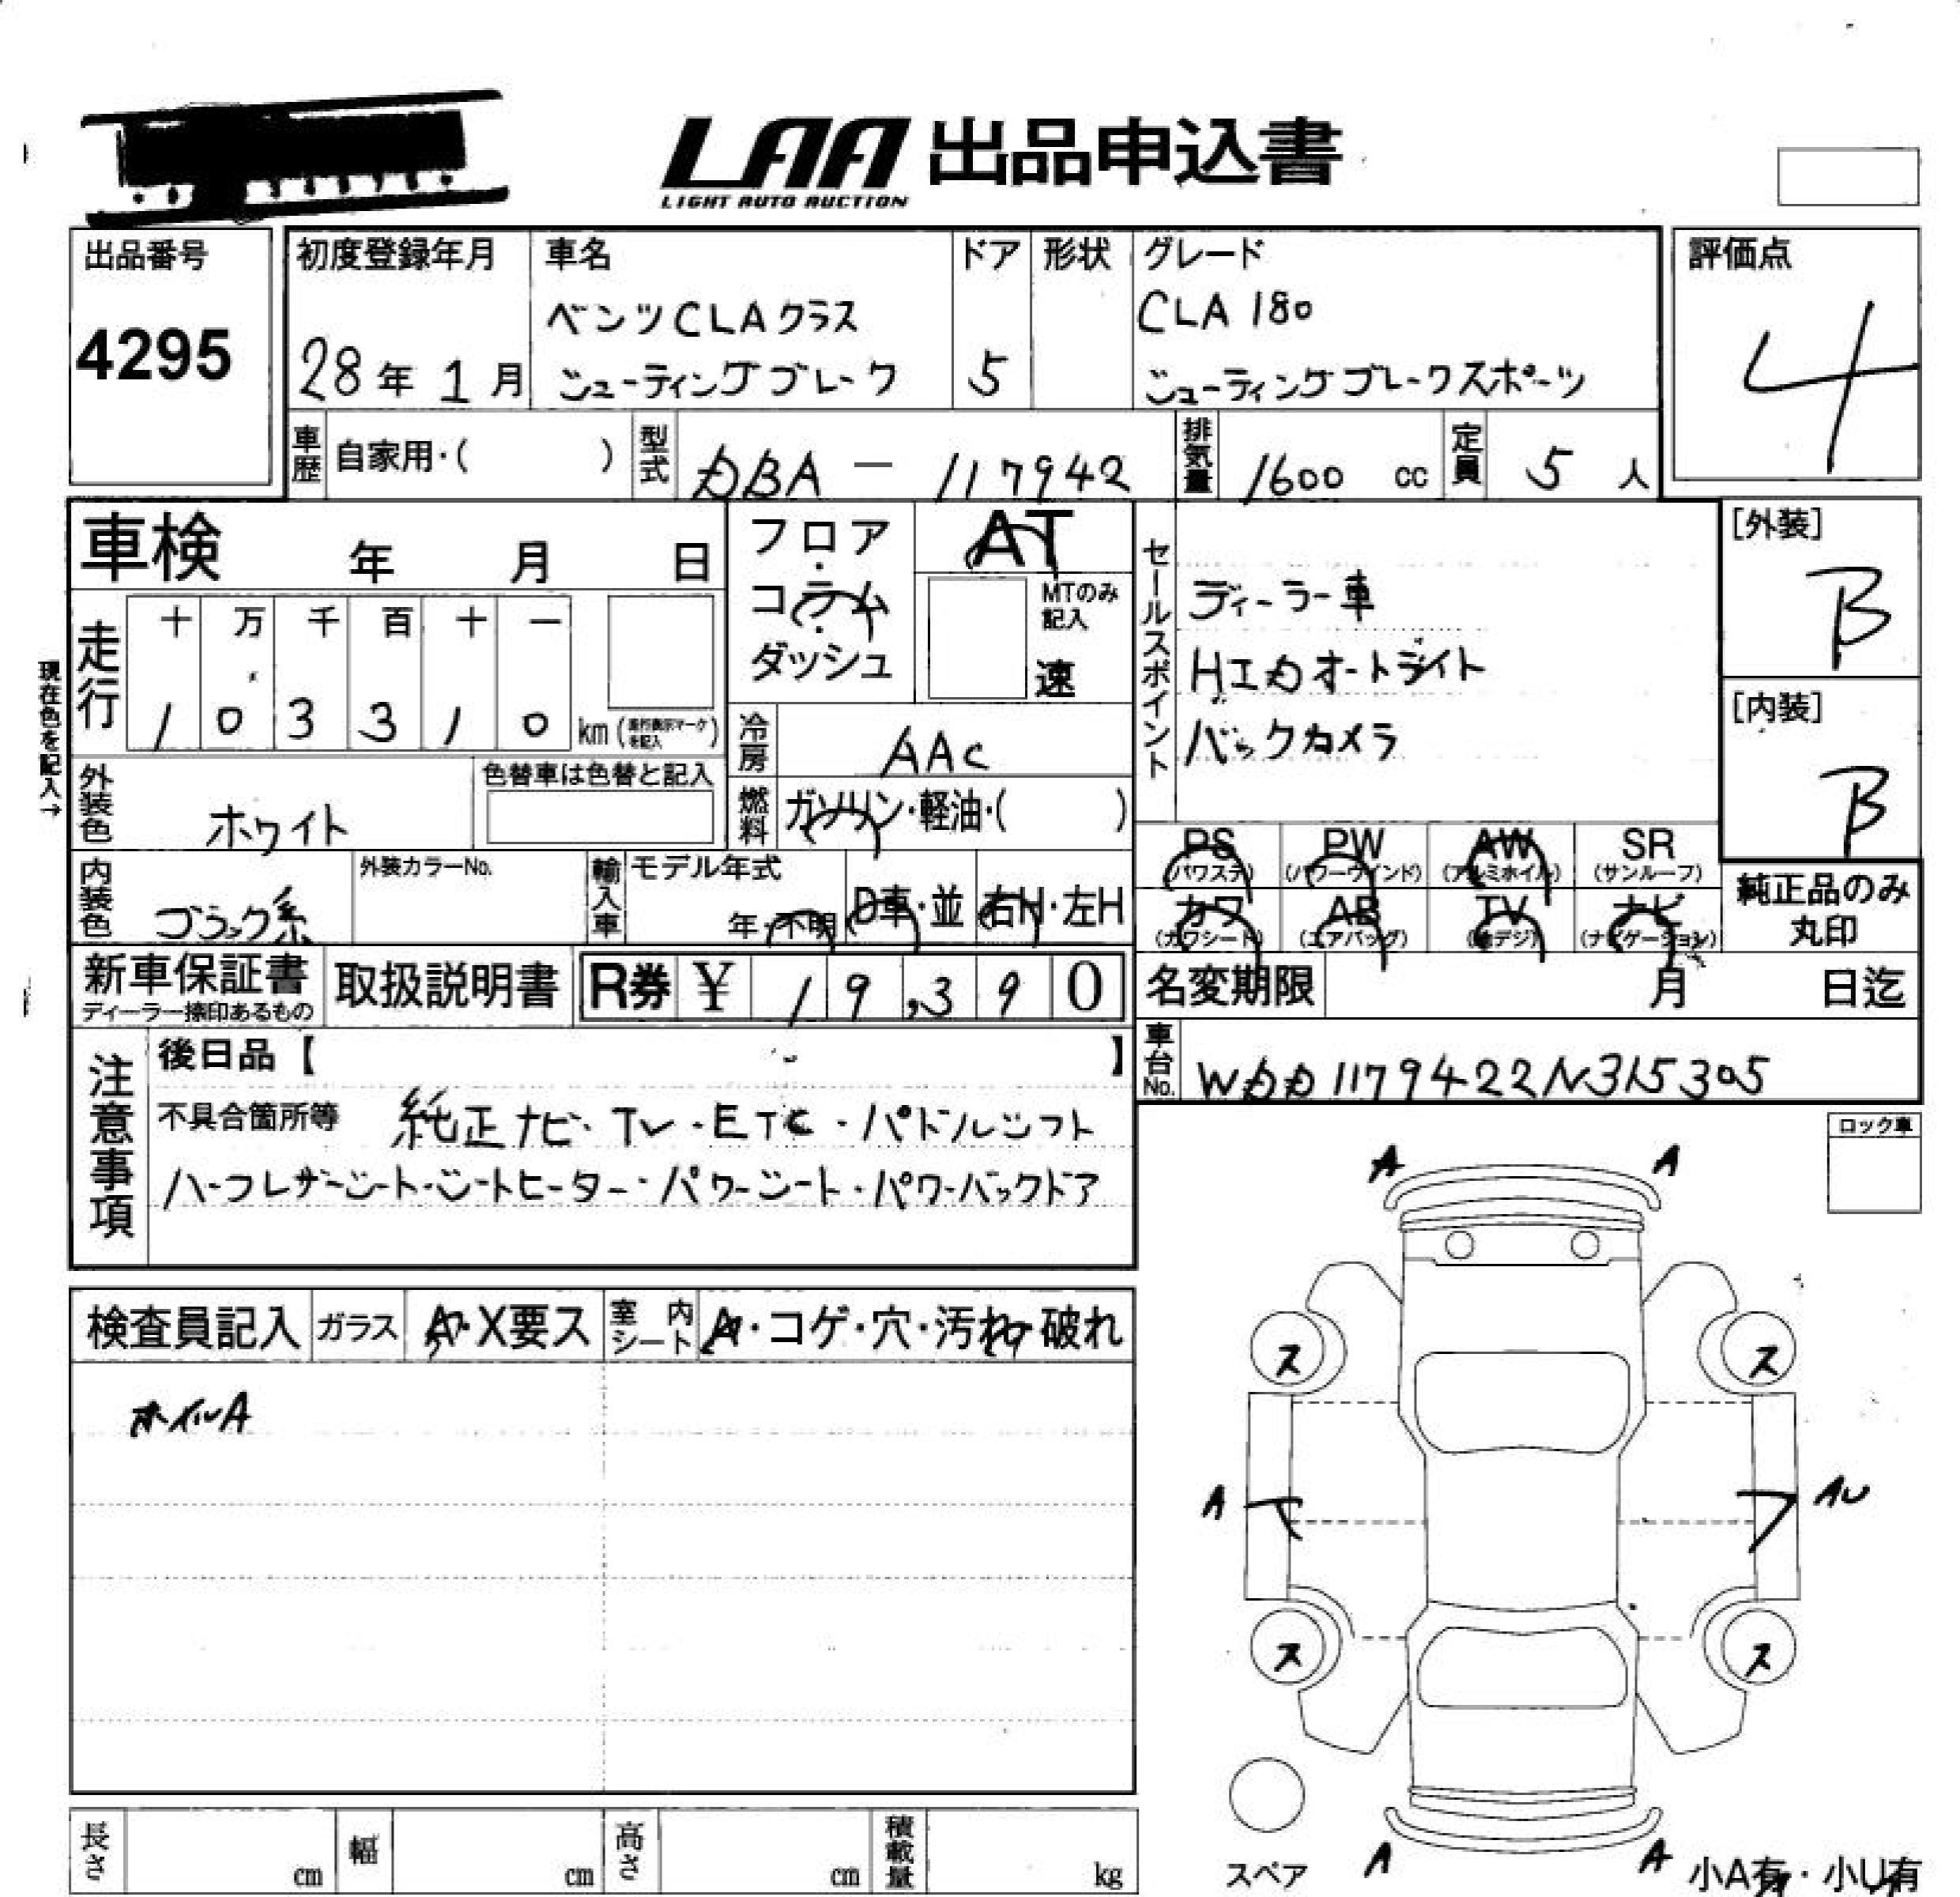 LAA 出品申込書
LIGHT AUTO AUCTION
出品番号
4295
初度登録年月
28年 1月
車名
ベンツCLAクラス
シューティングブレーク
ドア
5
形状
グレード
CLA 180
シューティングブレークスポーツ
評価点
4
車歴 自家用・( )
型式 DBA — 117942
排気量 1600 cc
定員 5 人
車検 年 月 日
フロア・コラム・ダッシュ
AT
MTのみ記入
速
セールスポイント
ディーラー車
HID オートライト
バックカメラ
[外装]
B
[内装]
B
現在色を記入→
走行
十 万 千 百 十 一
1 0 3 3 1 0 km (走行表示マークを記入)
冷房 AAC
外装色 ホワイト
色替車は色替と記入
燃料 ガソリン・軽油・( )
PS (パワステ)
PW (パワーウインド)
AW (アルミホイル)
SR (サンルーフ)
内装色 ブラック系
外装カラーNo.
輸入車 モデル年式
年・不明
D車・並
右H・左H
カワ (カワシート)
AB (エアバッグ)
TV (地デジ)
ナビ (ナビゲーション)
純正品のみ
丸印
新車保証書
ディーラー捺印あるもの
取扱説明書
R券 ¥ 19,390
名変期限 月 日迄
車台No. WDD1179422N315305
注意事項
後日品【 】
不具合箇所等 純正ナビ・TV・ETC・パドルシフト
ハーフレザーシート・シートヒーター・パワーシート・パワーバックドア
ロック車
検査員記入
ガラス A・X要ス
室内シート A・コゲ・穴・汚れ・破れ
ホイルA
A A
ス ス
A AU
ス ス
スペア
A A
小A有・小U有
長さ cm
幅 cm
高さ cm
積載量 kg